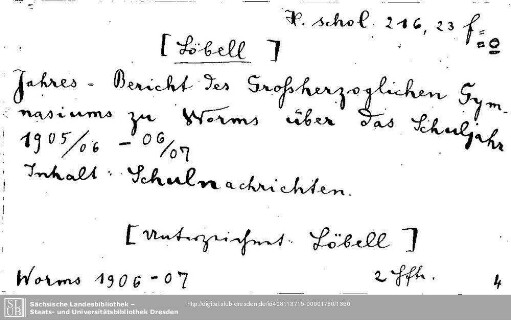 H. schol. 216, 23 f=0
[Löbell]
Jahres-Bericht des Großherzoglichen Gym-
nasiums zu Worms über das Schuljahr
1905/06 - 06/07
Inhalt: Schulnachrichten.
[Unterzeichnet: Löbell]
Worms 1906-07 2 Hfte. 4
SLUB
Sächsische Landesbibliothek –
Staats- und Universitätsbibliothek Dresden